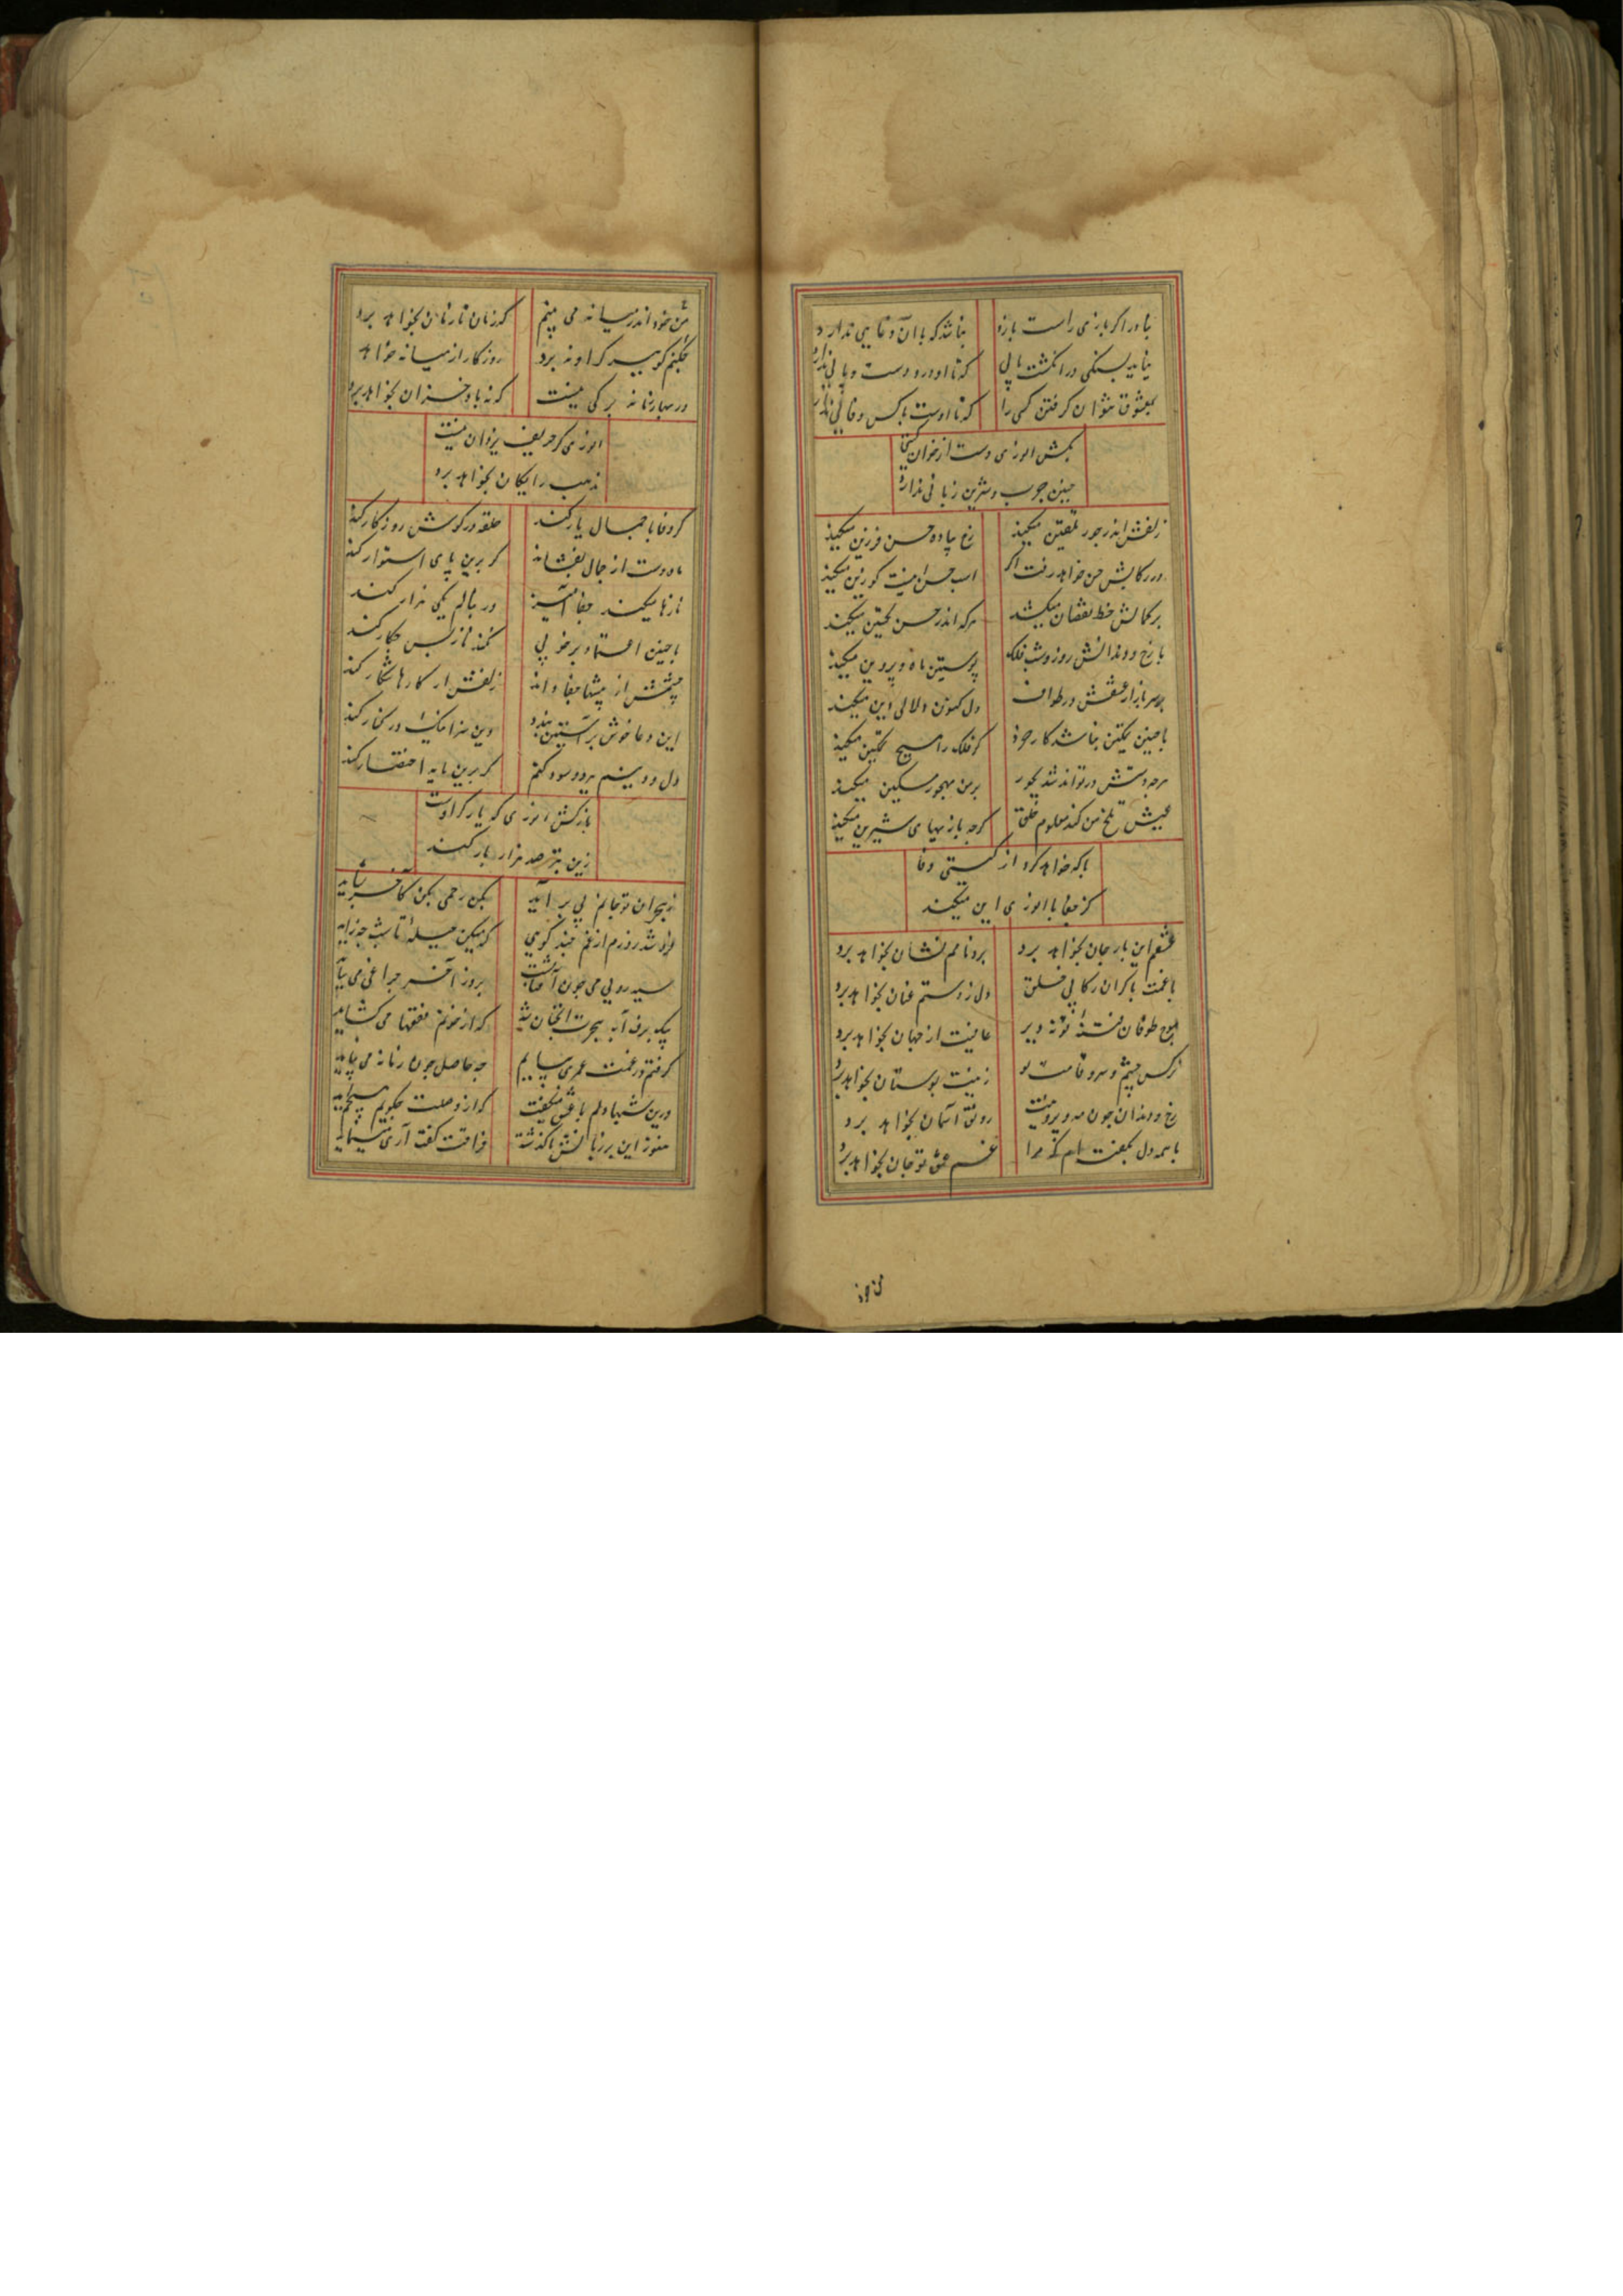 نباشد که با آن دغایی ندارد
نیاید بسنگی در انگشت پایی که تا او درو دست و پایی ندارد
بمعشوق نتوان گرفتن کسی را که تا اوست با کس وفایی ندارد
بکش انوری دست از خوان گیتی
چنین چرب و شیرین زبانی ندارد
زلفش اندر جور تلقین میکند رخ پیاده حسن فرزین میکند
در رکابش حسن خواهد رفت اگر اسب حسن اینست کو زین میکند
بر کمالش خط نقصان میکشد هرکه اندر حسن تحسین میکند
با رخ و دندانش روز و شب فلک پوستین ماه و پروین میکند
بر سر بازار عشقش در طواف دل کنون دلالی دین میکند
با چنین تمکین نباشد کار خرد گر فلک را هیچ تمکین میکند
هرچه دستش در تواند شد بجور بر من مهجور مسکین میکند
عیش تلخ من کند معلوم خلق گرچه بازیهای شیرین میکند
با که خواهد کرد از گیتی وفا
کز جفا با انوری این میکند
عشقم این بار جان بخواهد برد برد نامم نشان بخواهد برد
با غمت با گران رکابی دل ز دستم عنان بخواهد برد
موج طوفان فتنه تو نه دیر عافیت از جهان بخواهد برد
نرگس چشم و سرو قامت تو زینت بوستان بخواهد برد
رخ و دندان چون مه و پروینت رونق آسمان بخواهد برد
با همه دل بگفته ام که مرا غم عشق تو جان بخواهد برد
من خود اندر میانه می بینم کز زمان تا زمان بخواهد برد
روزگار از میانه خواهد
در بهار زمانه برگی نیست که نه باد خزان بخواهد برد
انوری گر حریف نرد اینست
ندهب رایگان بخواهد برد
گر وفا با جمال یار کند حلقه در گوش روزگار کند
ماه دست از جمال بفشاند گر برین پای استوار کند
نازها میکند جفا آمیز ور بنالم یکی هزار کند
با چنین اعتماد بر خوبی نکند ناز پس چکار کند
چشمش از بیشها جفا داند زلفش از کارها شکار کند
این دعا خوش بر آستین بندد وین سزا نیک در کنار کند
دل و دینم ببرد و سود کنم گر برین مایه اختصار کند
بازکش انوری که یار گر اوست
زین بتر صد هزار بار کند
ز هجران تو جانم می برآید بکن رحمی مکن کآخر نشاید
فرو شد روزم از غم چند گویی که میکن حیله تا شب چه زاید
سیه رویی من چون آفتابست بروز آخر چراغی می بباید
گرفتم در غمت عمری بپایم چه حاصل چون زمانه می نپاید
درین شبها دلم با عشق میگفت که از وصلت چگویم هیچم آید
هنوز این بر زبانش ناگذشته فراقت گفت آری می نماید